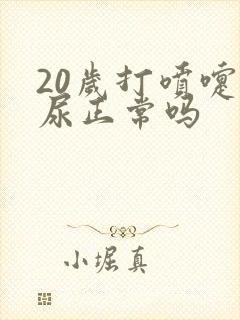 20歲打噴嚏
尿正常吗
小堀真